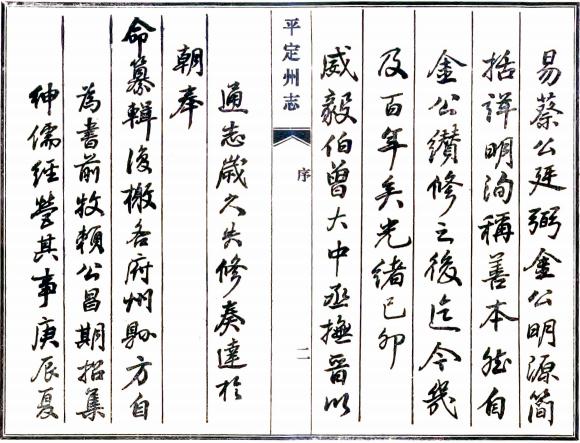 易蔡公延弼金公明源简
括詳明洵稱善本然自
金公纘修之後迄今幾
及百年矣光緒己卯
威毅伯曾大中丞撫晉以
平定州志
序
二
通志歲久失修奏達於
朝奉
命纂輯復檄各府州縣方自
為書前牧賴公昌期招集
紳儒經營其事庚辰夏